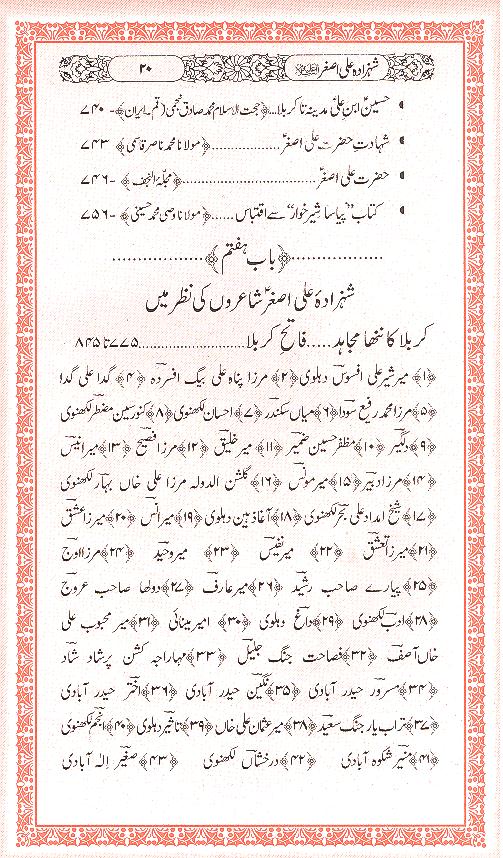 شہزادہ علی اصغر ۲۰
حسینؑ ابنِ علیؑ مدینہ تا کربلا...﴿حجت الاسلام محمد صادق نجمی (قم۔ایران)﴾۔ ۷۴۰
شہادتِ حضرت علی اصغرؑ....................﴿مولانا محمد ناصر قاسمی﴾ ۷۴۳
حضرت علی اصغرؑ..............................﴿مجلّہ النجف﴾ ۔۷۴۶
کتاب ”پیاسا شِیر خوار“ سے اقتباس......﴿مولانا وصی محمد حسینی﴾ ۔۷۵۶
................﴿باب ہفتم﴾................
شہزادۂ علی اصغرؑ شاعروں کی نظر میں
کربلا کا ننھا مجاہد.....فاتح کربلا.................۷۷۵ تا ۸۴۵
﴿۱﴾ میر شیر علی افسوسؔ دہلوی﴿۲﴾ مرزا پناہ علی بیگ افسردہؔ ﴿۴﴾ گدا علی گداؔ
﴿۵﴾مرزا محمد رفیع سوداؔ﴿۶﴾میاں سکندرؔ ﴿۷﴾احسانؔ لکھنوی﴿۸﴾کنور سین مضطرؔ لکھنوی
﴿۹﴾دلگیرؔ ﴿۱۰﴾مظفر حسین ضمیرؔ ﴿۱۱﴾میر خلیقؔ ﴿۱۲﴾مرزا فصیحؔ ﴿۱۳﴾میر انیسؔ
﴿۱۴﴾مرزا دبیرؔ﴿۱۵﴾میر مونسؔ ﴿۱۶﴾گلشن الدولہ مرزا علی خاں بہارؔ لکھنوی
﴿۱۷﴾شیخ امداد علی بحرؔ لکھنوی﴿۱۸﴾آغا ذہینؔ دہلوی﴿۱۹﴾میر انسؔ ﴿۲۰﴾میرزا عشقؔ
﴿۲۱﴾میرزا تعشقؔ ﴿۲۲﴾ میر نفیسؔ ﴿۲۳﴾ میر وحیدؔ ﴿۲۴﴾مرزا اوجؔ
﴿۲۵﴾پیارے صاحب رشیدؔ ﴿۲۶﴾میر عارفؔ ﴿۲۷﴾دولھا صاحب عروجؔ
﴿۲۸﴾ادبؔ لکھنوی ﴿۲۹﴾داغؔ دہلوی ﴿۳۰﴾ امیرؔ مینائی ﴿۳۱﴾میر محبوب علی
خاں آصفؔ ﴿۳۲﴾فصاحت جنگ جلیلؔ ﴿۳۳﴾مہاراجہ کشن پرشاد شادؔ
﴿۳۴﴾مسرورؔ حیدر آبادی ﴿۳۵﴾نگینؔ حیدر آبادی ﴿۳۶﴾اخترؔ حیدر آبادی
﴿۳۷﴾تراب یار جنگ سعیدؔ﴿۳۸﴾میر عثمان علی خاں﴿۳۹﴾تاثیرؔ دہلوی﴿۴۰﴾انجمؔ لکھنوی
﴿۴۱﴾منیرؔ شکوہ آبادی ﴿۴۲﴾درخشاںؔ لکھنوی ﴿۴۳﴾صغیرؔ اِلٰہ آبادی